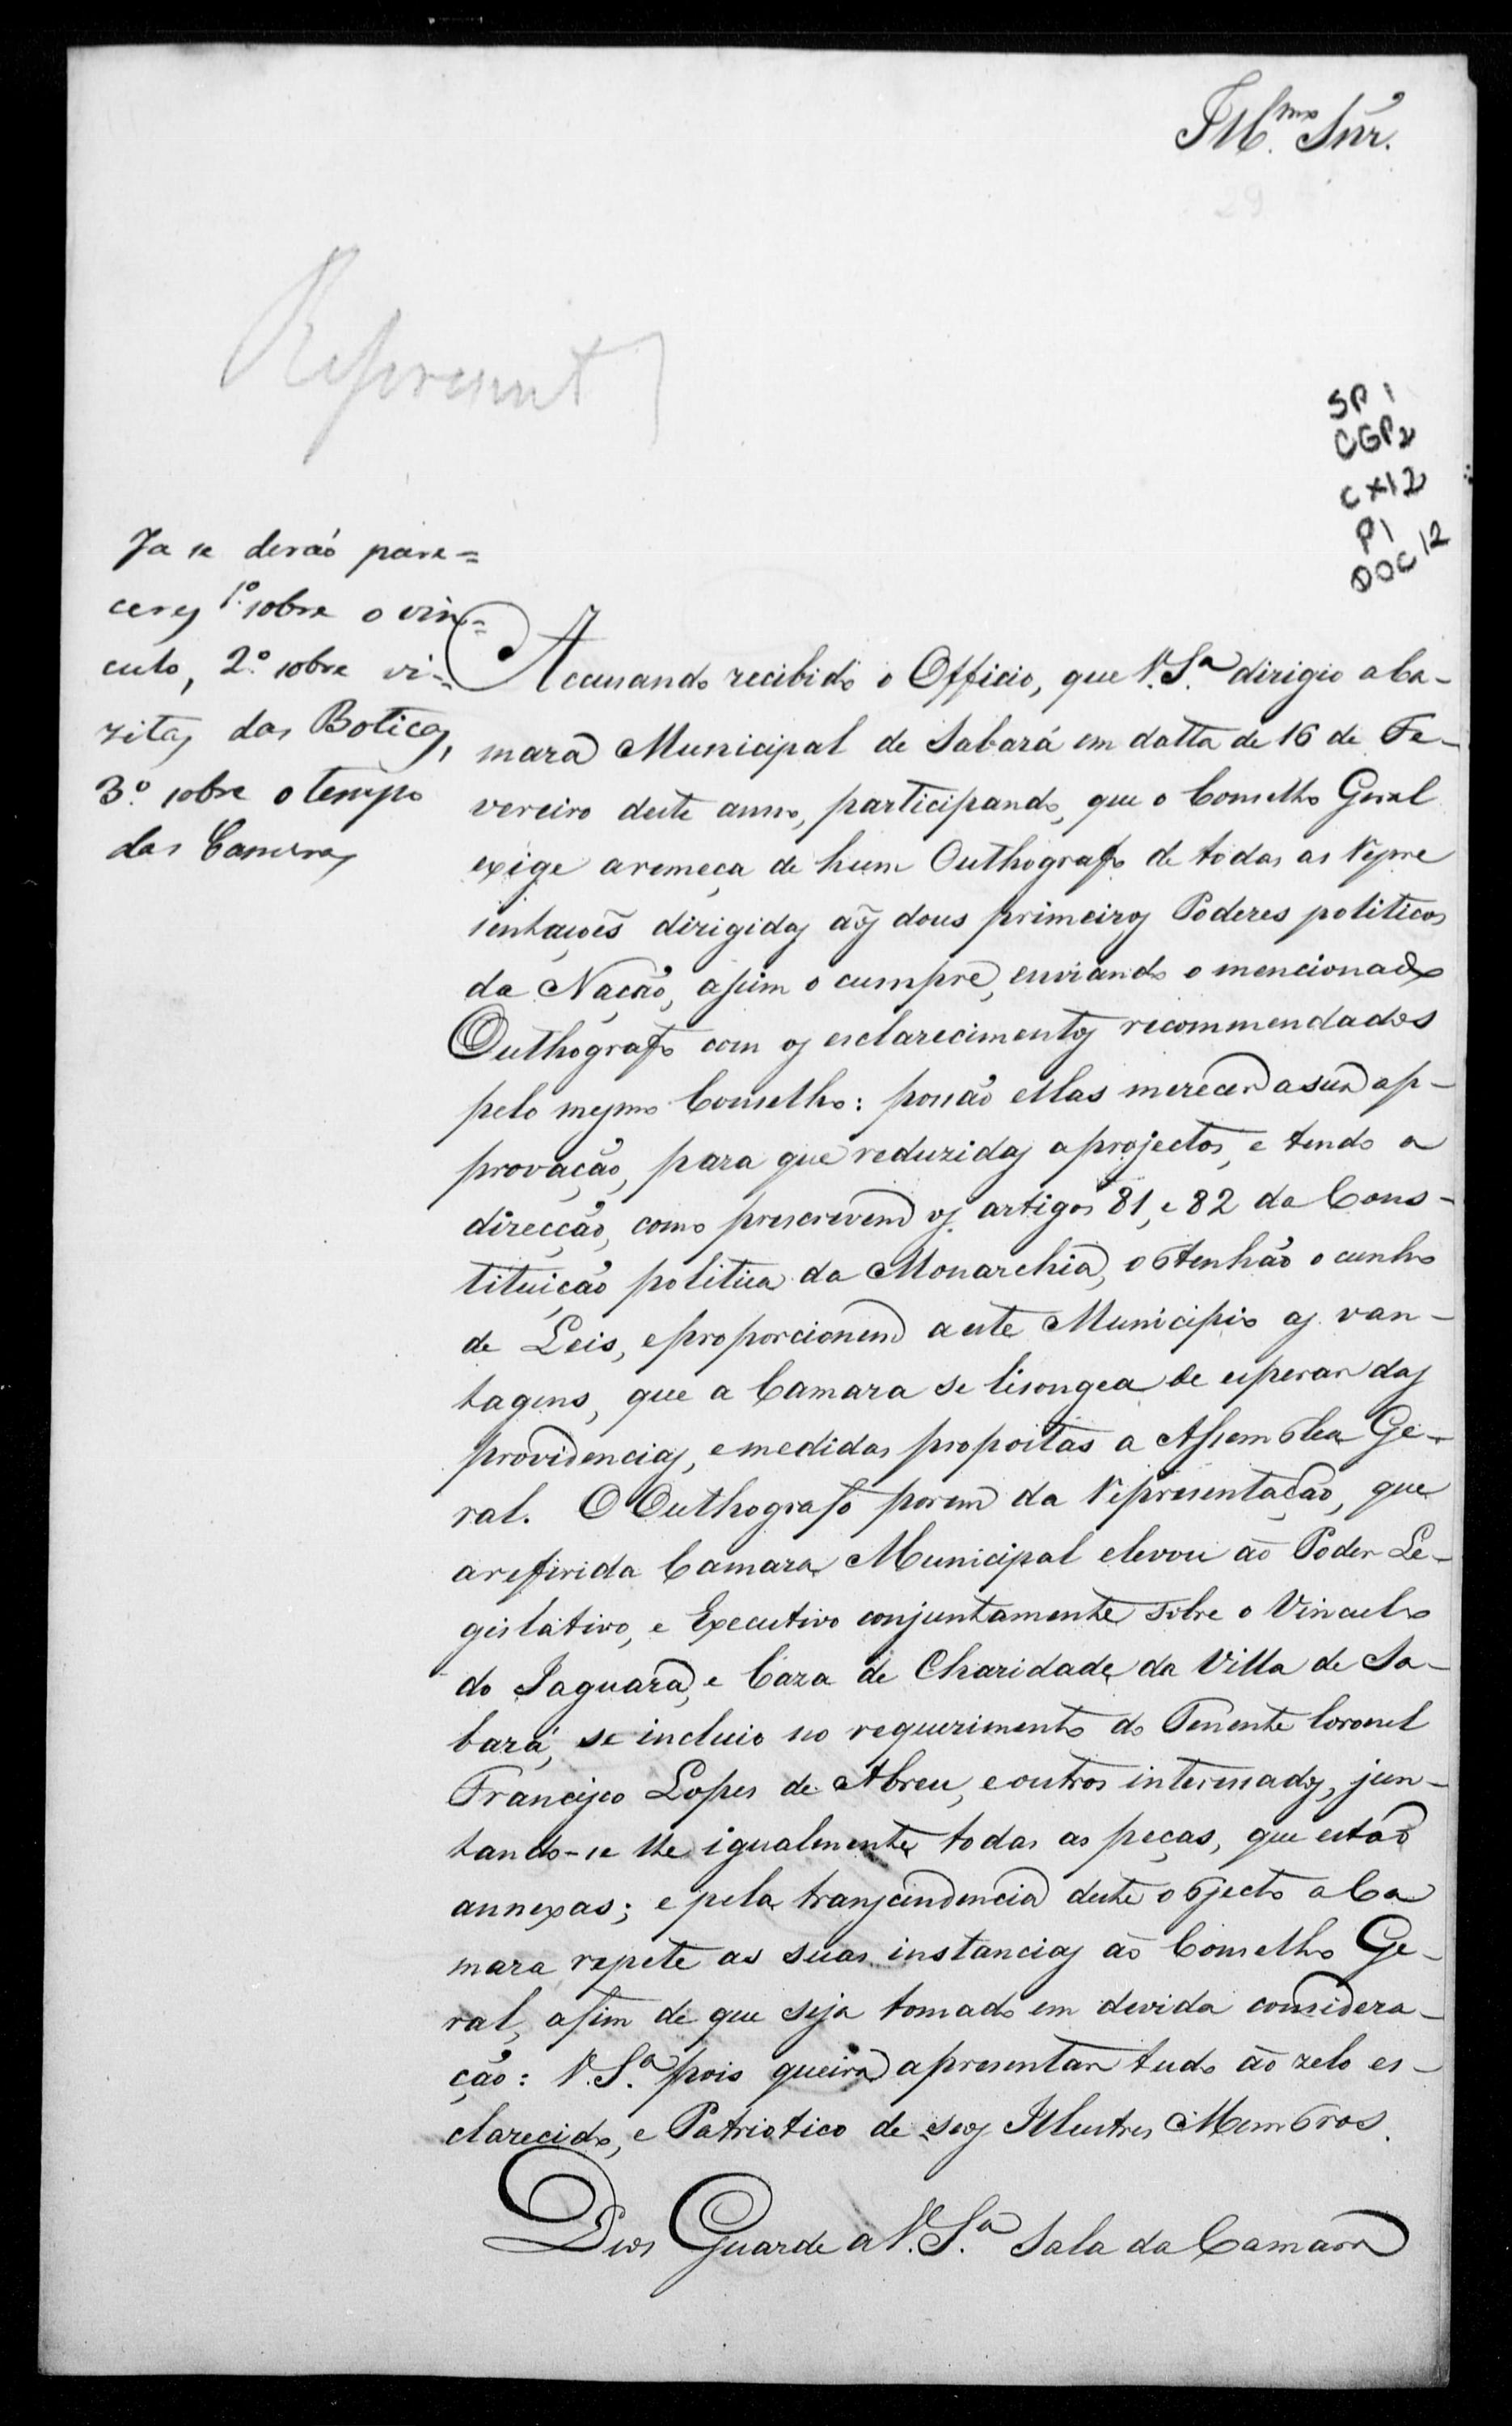 Ill.mo Snr.
29
Represent
SP 1
CGP2
CX12
P1
DOC 12
Ja se derão pare=
ceres 1.º sobre o vin=
culo, 2.º sobre vi=
zitas das Boticas,
3.º sobre o tempo
das Camaras
Accusando recibido o Officio, que V. S.ª dirigio a Ca-
mara Municipal de Sabará em datta de 16 de Fe-
vereiro deste anno, participando, que o Conselho Geral
exige a remeça de hum Outhografo de todas as Repre
sentações dirigidas aos dous primeiros Poderes politicos
da Nação, assim o cumpre, enviando o mencionado
Outhografo com os esclarecimentos recommendados
pelo mesmo Conselho: possão ellas merecer a sua ap-
provação, para que reduzidas a projectos, e tendo a
direcção, como prescrevem os artigos 81, e 82 da Cons-
tituição politica da Monarchia, obtenhão o cunho
de Leis, e proporcionem a este Municipio as van-
tagens, que a Camara se lisongea de esperar das
providencias, e medidas propostas a Assemblea Ge-
ral. O Outhografo porem da Representação, que
a refirida Camara Municipal elevou ao Poder Le-
gislativo, e Executivo conjuntamente sobre o Vinculo
do Jaguara, e Caza de Charidade da Villa de Sa-
bará, se incluio no requerimento do Tenente Coronel
Francisco Lopes de Abreu, e outros interessados, jun-
tando-se lhe igualmente todas as peças, que estão
annexas; e pela transcendencia deste objecto a Ca
mara repete as suas instancias ao Conselho Ge-
ral, afim de que seja tomado em devida considera-
ção: V. S.ª pois queira apresentar tudo ao zelo es-
clarecido, e Patriotico de seos Illustres Membros.
Deos Guarde a V. S.ª Sala da Camara